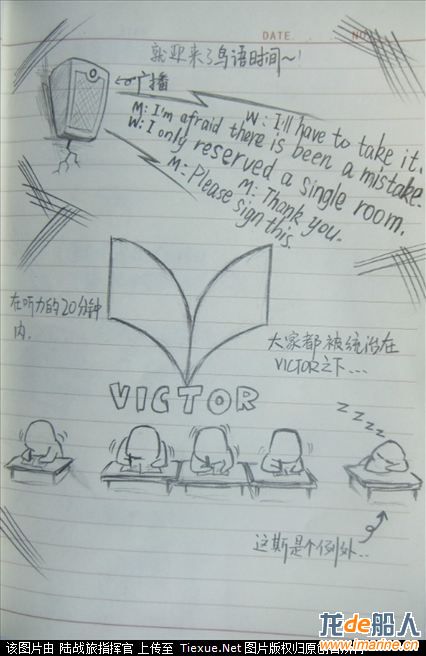 DATE
NO
就迎来了鸟语时间~!
广播
W: I'll have to take it.
M: I'm afraid there is been a mistake.
W: I only reserved a single room.
M: Thank you.
M: Please sign this.
在听力的20分钟
内.
大家都被统治在
VICTOR之下...
VICTOR
zzzz
这斯是个例外..
龙de船人
www.imarine.cn
该图片由 陆战旅指挥官 上传至 Tiexue.Net 图片版权归原创者所有